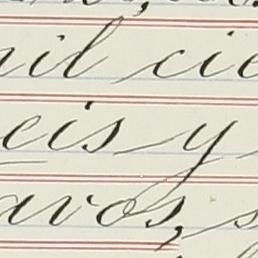 mil cie
eis y
avos, s